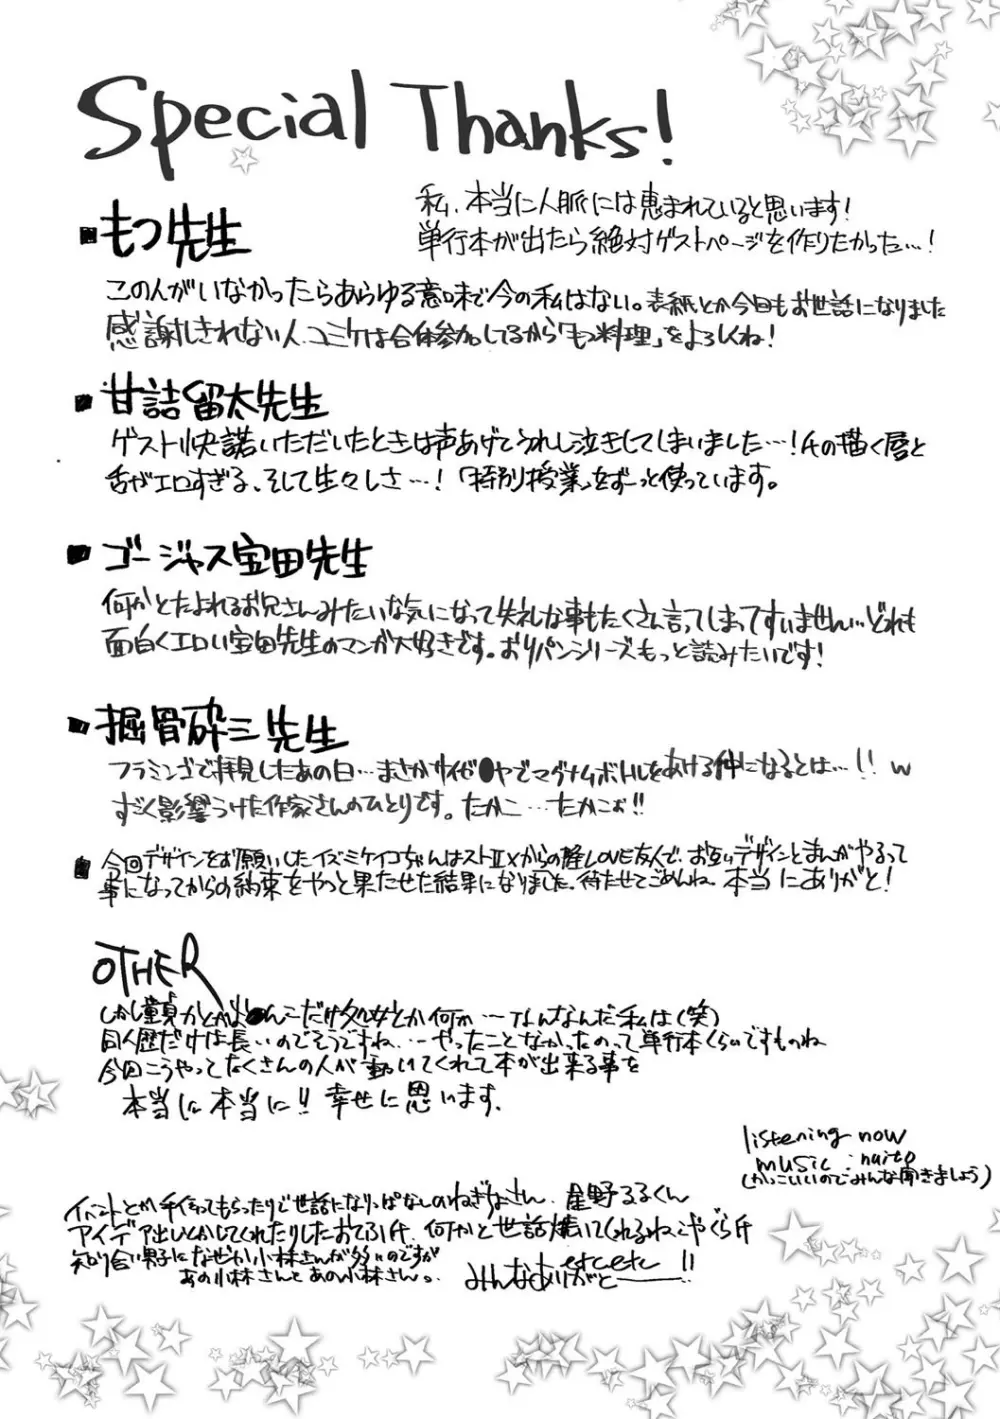 Special Thanks!
私、本当に人脈には恵まれていると思います!
単行本が出たら絶対ゲストページを作りたかった…!
■もつ先生
この人がいなかったらあらゆる意味で今の私はない。表紙とか今回もお世話になりました
感謝しきれない人。コミケは合体参加してるから「もつ料理」をよろしくね!
■甘詰留太先生
ゲスト快諾いただいたときは声あげてうれし泣きしてしまいました…!Fの描く唇と
舌がエロすぎる、そして生々しさ…!「特別授業」をずーっと使っています。
■ゴージャス宝田先生
何かとたよれるお兄さんみたいな気になって失礼な事もたくさん言ってしまってすいません…どれも
面白くエロい宝田先生のマンガ大好きです。おりパンシリーズもっと読みたいです!
■掘骨砕三先生
フラミンゴで拝見したあの日…まさかサイゼ●ヤでマグナムボトルをあける仲になるとは…!!w
すごく影響うけた作家さんのひとりです。たかこ…たかこぉ!!
■今回デザインをお願いしたイズミケイコちゃんはストⅡXからの隆LOVE友人で、お互いデザインとまんがやるって
事になってからの約束をやっと果たせた結果になりました。待たせてごめんね。本当にありがと!
OTHER
しかし童貞かとか
んこだけ処女とか何か…なんなんだ私は(笑)
同人歴だけは長いのでそうですね…やったことなかったのって単行本くらいですものね
今回こうやってたくさんの人が動いてくれて本が出来る事を
本当に本当に!!幸せに思います。
listening now
music : naito
(かっこいいのでみんな聞きましょう)
イベントとか手伝ってもらったりで世話になりっぱなしのねぎなさん、星野るるくん
アイデア出しとかしてくれたりしたおてふF、何かと世話焼いてくれるねこやぐらF
知り合い男子になぜか小林さんが多いのですが
あの小林さんとあの小林さん。
etcetc
みんなありがとー!!